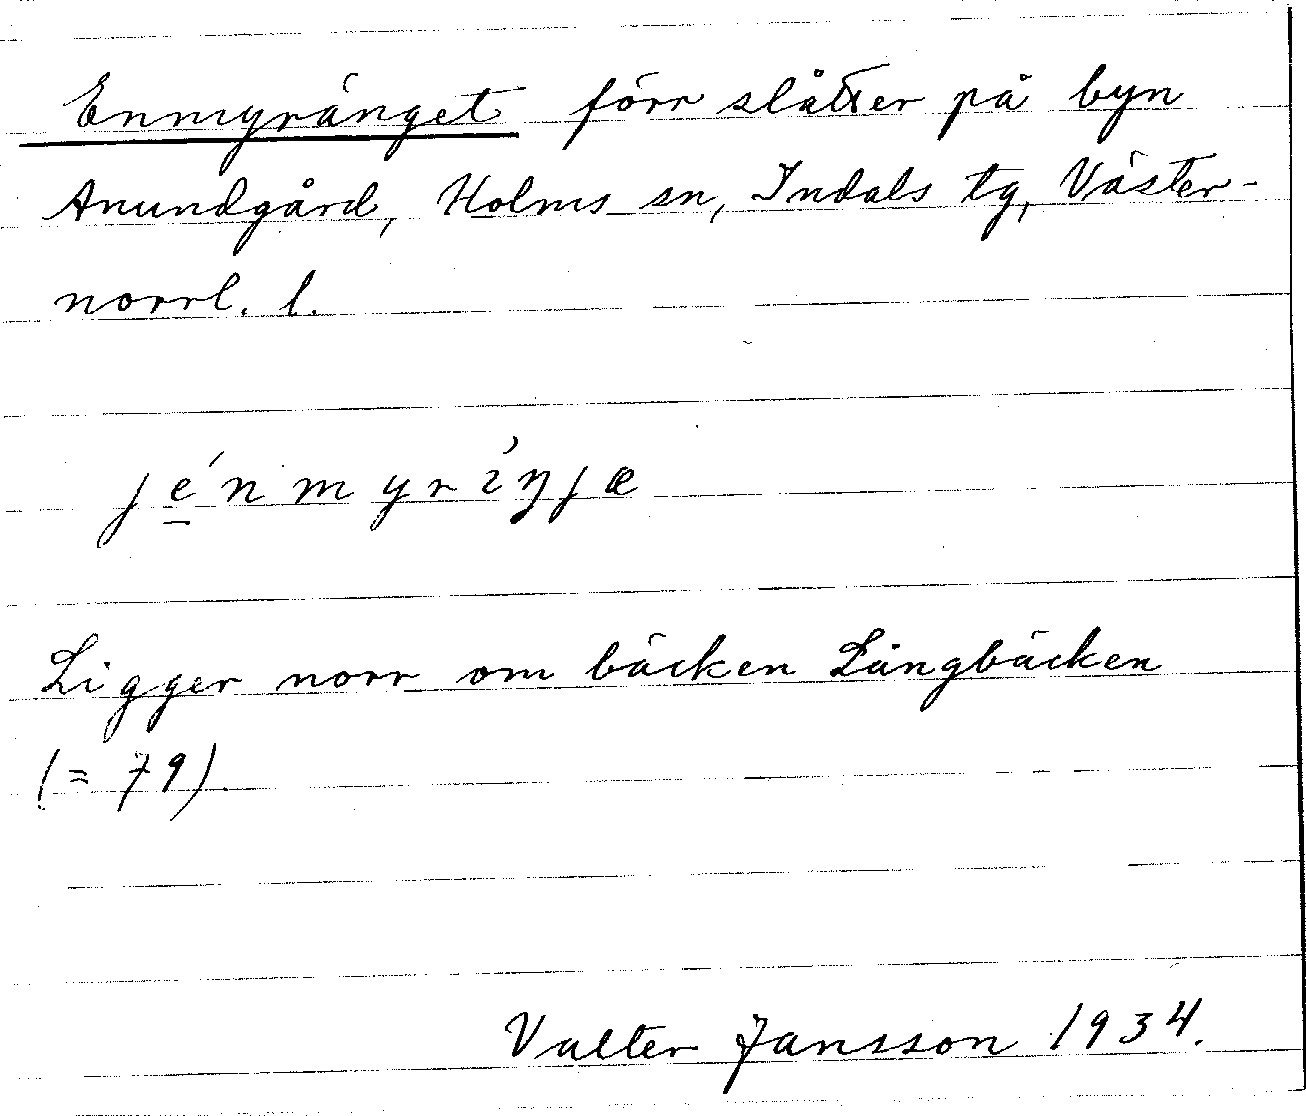 Enmyränget förr slåtter på byn
Anundgård, Holms sn, Indals tg, Väster-
norrl. l.
jé̲nmyríŋjæ
Ligger norr om bäcken Långbäcken
(= 79)
Valter Jansson 1934.